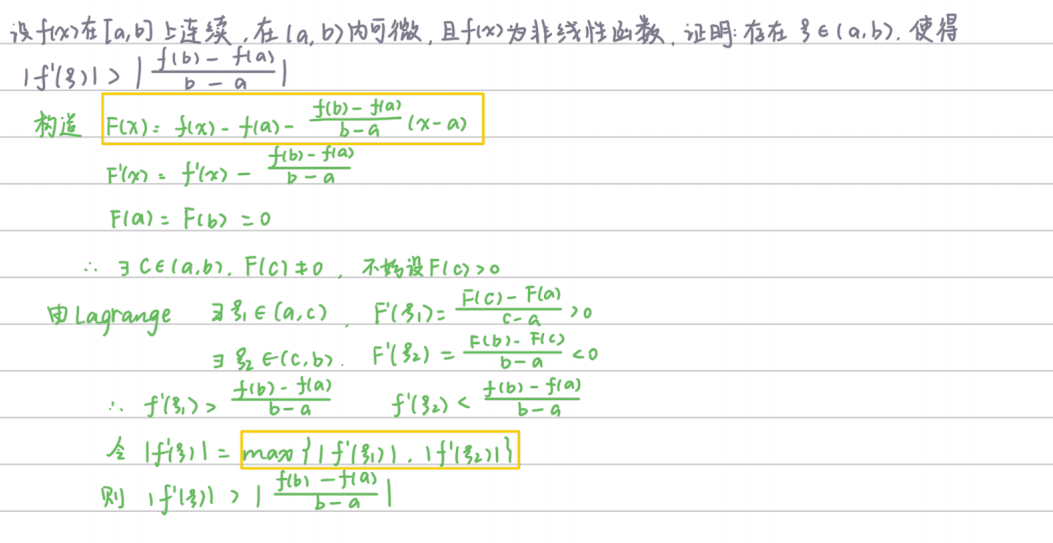 设f(x)在[a,b]上连续,在(a,b)内可微,且f(x)为非线性函数,证明:存在ξ∈(a,b),使得
|f'(ξ)| > |\frac{f(b)-f(a)}{b-a}|
构造 F(x)= f(x)- f(a)- \frac{f(b)-f(a)}{b-a}(x-a)
F'(x)= f'(x)- \frac{f(b)-f(a)}{b-a}
F(a)= F(b)=0
∴ ∃ C∈(a,b), F(c)≠0, 不妨设F(c)>0
由Lagrange ∃ξ₁∈(a,c), F'(ξ₁)= \frac{F(c)-F(a)}{c-a}>0
∃ξ₂∈(c,b), F'(ξ₂)= \frac{F(b)-F(c)}{b-a}<0
∴ f'(ξ₁)> \frac{f(b)-f(a)}{b-a} f'(ξ₂)< \frac{f(b)-f(a)}{b-a}
令 |f'(ξ)|= max{|f'(ξ₁)|, |f'(ξ₂)|}
则 |f'(ξ)| > |\frac{f(b)-f(a)}{b-a}|